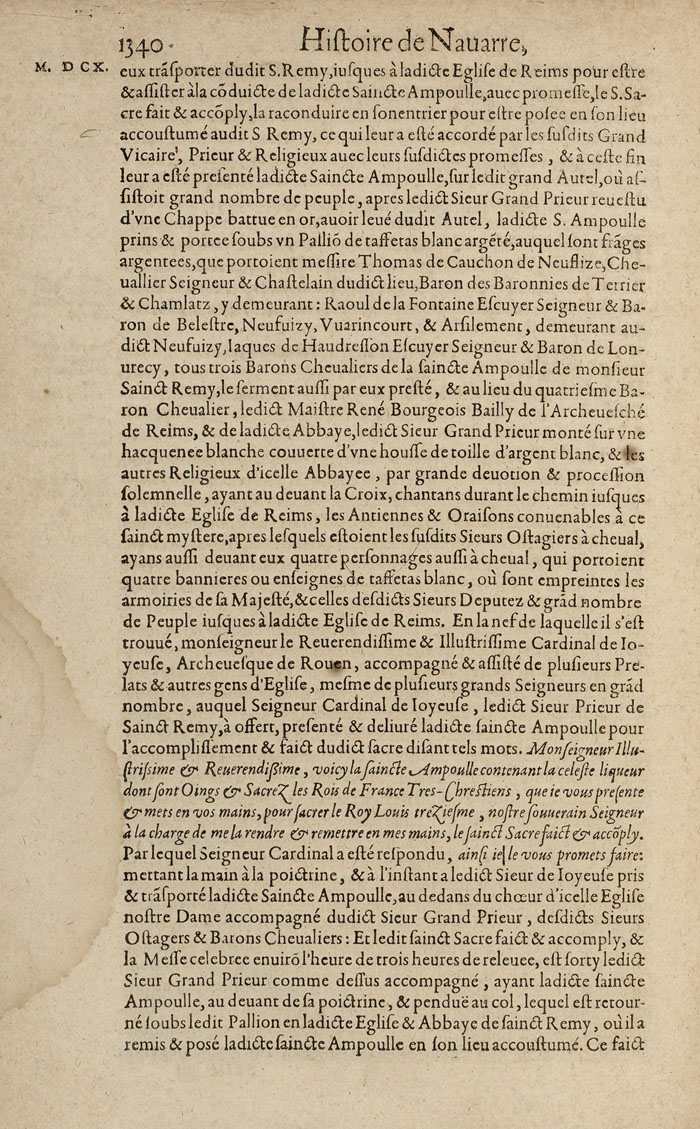 1340. Histoire de Nauarre,
M. DCX.
eux trãsporter dudit S. Remy, iusques à ladicte Eglise de Reims pour estre
& assister à la cõduicte de ladicte Saincte Ampoulle, auec promesse, le S. Sa-
cre fait & accõply, la raconduire en son entrier pour estre posee en son lieu
accoustumé audit S Remy, ce qui leur a esté accordé par les susdits Grand
Vicaire', Prieur & Religieux auec leurs susdictes promesses, & à ceste fin
leur a esté presenté ladicte Saincte Ampoulle, sur ledit grand Autel, où as-
sistoit grand nombre de peuple, apres ledict Sieur Grand Prieur reuestu
d'vne Chappe battue en or, auoir leué dudit Autel, ladicte S. Ampoulle
prins & portee soubs vn Palliõ de taffetas blanc argẽté, auquel sont frãges
argentees, que portoient messire Thomas de Cauchon de Neuflize, Che-
uallier Seigneur & Chastelain dudict lieu, Baron des Baronnies de Terrier
& Chamlatz, y demeurant: Raoul de la Fontaine Escuyer Seigneur & Ba-
ron de Belestre, Neufuizy, Vuarincourt, & Arsilement, demeurant au-
dict Neufuizy, Iaques de Haudresson Escuyer Seigneur & Baron de Lon-
urecy, tous trois Barons Cheualiers de la saincte Ampoulle de monsieur
Sainct Remy, le serment aussi par eux presté, & au lieu du quatriesme Ba-
ron Cheualier, ledict Maistre René Bourgeois Bailly de l'Archeuesché
de Reims, & de ladicte Abbaye, ledict Sieur Grand Prieur monté sur vne
hacquenee blanche couuerte d'vne housse de toille d'argent blanc, & les
autres Religieux d'icelle Abbayee, par grande deuotion & procession
solemnelle, ayant au deuant la Croix, chantans durant le chemin iusques
à ladicte Eglise de Reims, les Antiennes & Oraisons conuenables à ce
sainct mystere, apres lesquels estoient les susdits Sieurs Ostagiers à cheual,
ayans aussi deuant eux quatre personnages aussi à cheual, qui portoient
quatre bannieres ou enseignes de taffetas blanc, où sont empreintes les
armoiries de sa Majesté, & celles desdicts Sieurs Deputez & grãd nombre
de Peuple iusques à ladicte Eglise de Reims. En la nef de laquelle il s'est
trouué, monseigneur le Reuerendissime & Illustrissime Cardinal de Io-
yeuse, Archeuesque de Rouen, accompagné & assisté de plusieurs Pre-
lats & autres gens d'Eglise, mesme de plusieurs grands Seigneurs en grãd
nombre, auquel Seigneur Cardinal de Ioyeuse, ledict Sieur Prieur de
Sainct Remy, à offert, presenté & deliuré ladicte saincte Ampoulle pour
l'accomplissement & faict dudict sacre disant tels mots. Monseigneur Illu-
strissime & Reuerendissime, voicy la saincte Ampoulle contenant la celeste liqueur
dont sont Oings & Sacrez les Rois de France Tres-Chrestiens, que ie vous presente
& mets en vos mains, pour sacrer le Roy Louis treziesme, nostre souuerain Seigneur
à la charge de me la rendre & remettre en mes mains, le sainct Sacre faict & accõply.
Par lequel Seigneur Cardinal a esté respondu, ainsi ie le vous promets faire:
mettant la main à la poictrine, & à l'instant a ledict Sieur de Ioyeuse pris
& trãsporté ladicte Saincte Ampoulle, au dedans du chœur d'icelle Eglise
nostre Dame accompagné dudict Sieur Grand Prieur, desdicts Sieurs
Ostagers & Barons Cheualiers: Et ledit sainct Sacre faict & accomply, &
la Messe celebree enuirõ l'heure de trois heures de releuee, est sorty ledict
Sieur Grand Prieur comme dessus accompagné, ayant ladicte saincte
Ampoulle, au deuant de sa poictrine, & penduë au col, lequel est retour-
né soubs ledit Pallion en ladicte Eglise & Abbaye de sainct Remy, où il a
remis & posé ladicte saincte Ampoulle en son lieu accoustumé. Ce faict